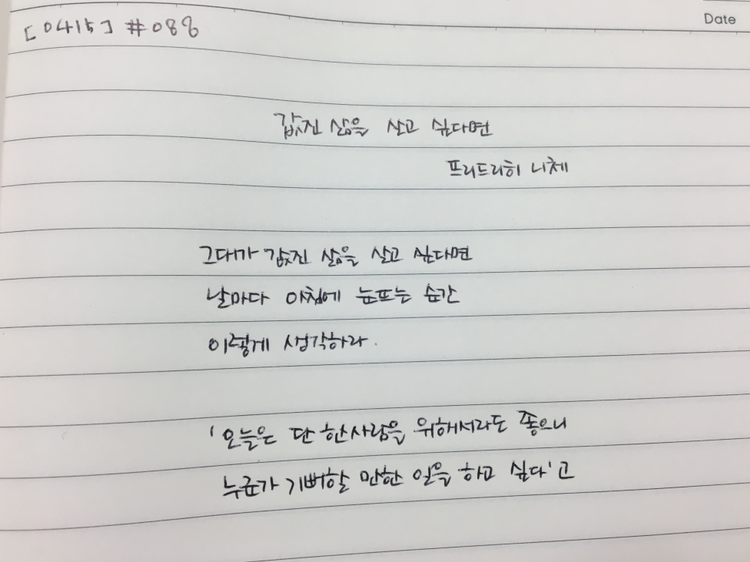 Date
[0415] #088
값진 삶을 살고 싶다면
프리드리히 니체
그대가 값진 삶을 살고 싶다면
날마다 아침에 눈뜨는 순간
이렇게 생각하라.
'오늘은 단 한사람을 위해서라도 좋으니
누군가 기뻐할 만한 일을 하고 싶다'고